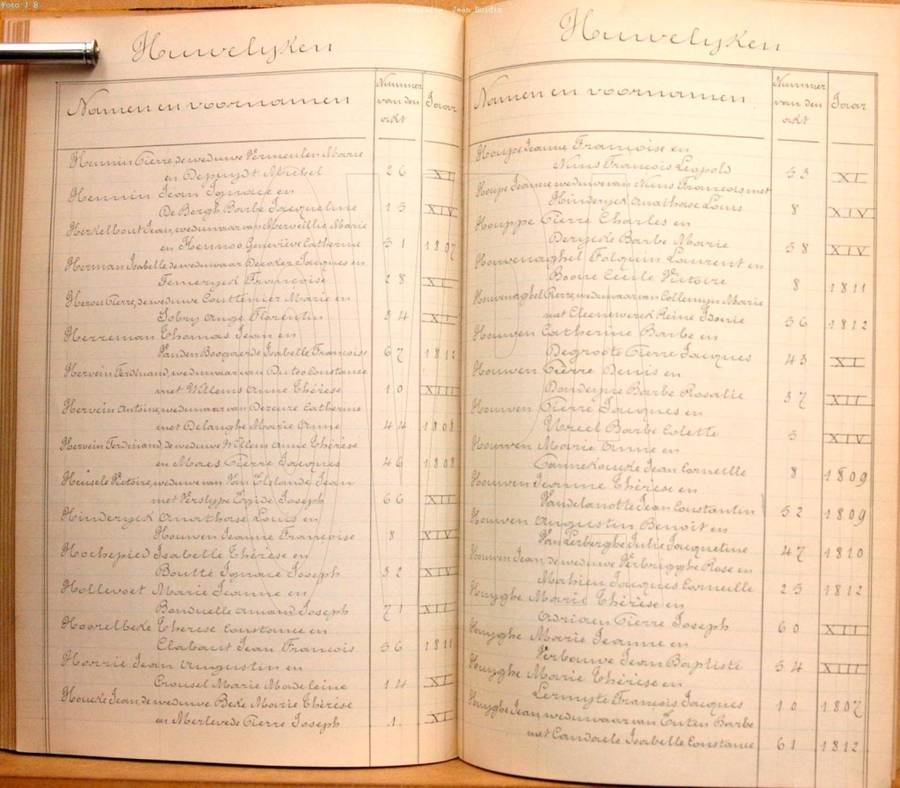 Foto J B
Jean Bardin
Huwelijken
Namen en voornamen
Nummer van den adkt
Jaar
Hennin Pierre, de weduwe Vermeulen Marie
en Depuydt Michel 26 XI
Hennin Jean Ignace en
De Bergh Barbe Jacqueline 15 XIV
Herkelbout Jean, weduwaar van Merveillie, Marie
en Hennoo Geneviève Catherine 51 1807
Herman Isabelle de weduwaar Decoker Jacques en
Temeryck Françoise 28 XI
Herou Pierre, de weduwe Couttenier Marie en
Sobry Ange Florentin 34 XI
Herreman Thomas Jean en
Vanden Boogaerde Isabelle Françoise 67 1812
Hervein Ferdinand, weduwaar van Dutoo Constance
met Willems Anne Thérèse 10 XIII
Hervein Antoine, weduwaar van Dereure Catherine
met Delanghe Marie Anne 44 1808
Hervein Ferdinand, de weduwe Willems Anne Thérèse
en Maes Pierre Jacques 46 1808
Heusele Victoire, weduwe van Van Elslande Jean
met Verstype Egide Joseph 66 XII
Hinderyck Anathase Louis en
Houwen Jeanne Françoise 8 XIV
Hochepied Isabelle Thérèse en
Boutté Ignace Joseph 32 XIV
Hollevoet Marie Jeanne en
Bonduelle Amand Joseph 71 XII
Hoorelbeke Therese Constance en
Clabaut Jean François 56 1811
Horrie Jean Augustin en
Crousel Marie Madeleine 14 XI
Houcke Jean, de weduwe Beke Marie Thérèse
en Merlevede Pierre Joseph 1 XI
Huwelijken
Namen en voornamen
Nummer van den adkt
Jaar
Houpe Jeanne Françoise en
Nuns François Léopold 55 XI
Houpe Jeanne weduwe van Nuns François met
Hinderyck Anathase Louis 8 XIV
Houppe Pierre Charles en
Derycke Barbe Marie 58 XIV
Houvenaghel Folquin Laurent en
Boone Cecile Victoire 8 1811
Houvnaghel Pierre, weduwaar van Collemyn Marie
met Cleenewerck Reine Isonie 56 1812
Houwen Catherine Barbe en
Degroote Pierre Jacques 43 XI
Houwen Pierre Denis en
Dondeyne Barbe Rosalie 37 XII
Houwen Pierre Jacques en
Ureel Barbe Colette 5 XIV
Houwen Marie Anne en
Cannekoucke Jean Corneille 8 1809
Houwen Jeanne Thérèse en
Vandelanotte Jean Constantin 52 1809
Houwen Augustin Benoit en
Van Terberghe Julie Jacqueline 47 1810
Houwen Jean, de weduwe Verbrugghe Rose en
Mathieu Jacques Corneille 25 1812
Huyghe Marie Thérèse en
Adriaen Pierre Joseph 60 XII
Huyghe Marie Jeanne en
Verbouwe Jean Baptiste 54 XIII
Huyghe Marie Thérèse en
Lermyte François Jacques 10 1807
Huyghe Jean, weduwaar van Tuten Barbe
met Candaele Isabelle Constance 61 1812